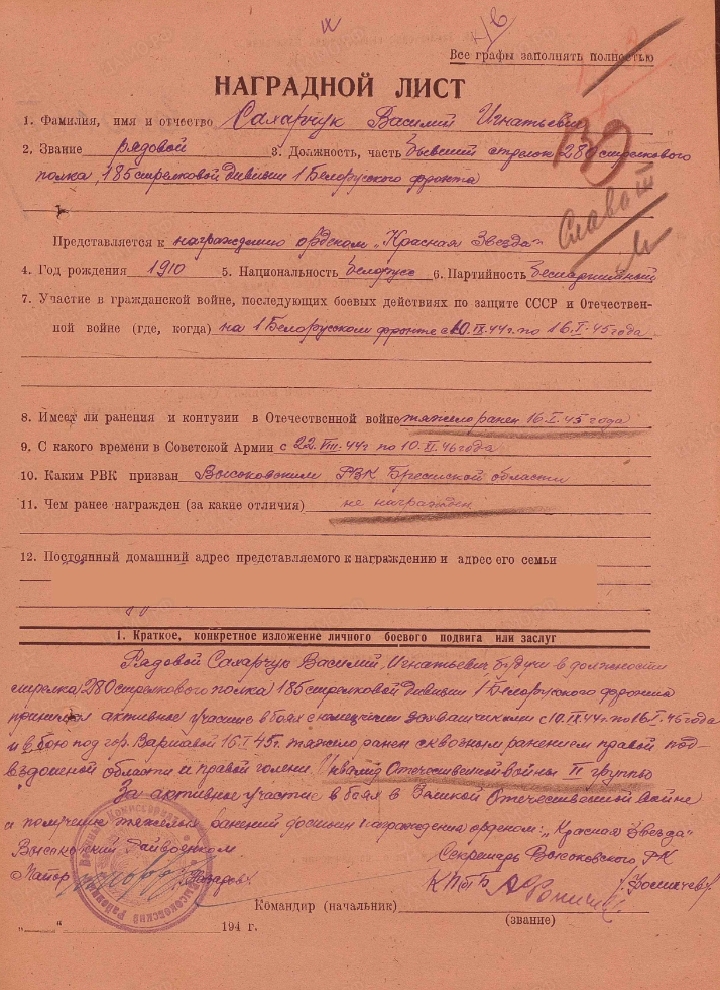 IX
Все графы заполнять полностью
НАГРАДНОЙ ЛИСТ
130
1. Фамилия, имя и отчество Сахарчук Василий Игнатьевич
2. Звание рядовой 3. Должность, часть бывший стрелок 280 стрелкового
полка, 185 стрелковой дивизии 1 Белорусского фронта
Слава III
Представляется к награждению орденом „Красная Звезда"
4. Год рождения 1910 5. Национальность белорус 6. Партийность беспартийный
7. Участие в гражданской войне, последующих боевых действиях по защите СССР и Отечествен-
ной войне (где, когда) на 1 Белорусском фронте с 10.IX.44г. по 16.I.45 года
8. Имеет ли ранения и контузии в Отечественной войне тяжело ранен 16.I.45 года
9. С какого времени в Советской Армии с 22.VIII.44г по 10.II.46 года
10. Каким РВК призван Высоковским РВК Брестской области
11. Чем ранее награжден (за какие отличия) не награжден
12. Постоянный домашний адрес представляемого к награждению и адрес его семьи
I. Краткое, конкретное изложение личного боевого подвига или заслуг
Рядовой Сахарчук Василий Игнатьевич, будучи в должности
стрелка 280 стрелкового полка 185 стрелковой дивизии 1 Белорусского фронта
принимал активное участие в боях с немецкими захватчиками с 10.IX.44г. по 16.I.45 года
и в бою под гор. Варшавой 16.I.45г. тяжело ранен сквозным ранением правой под-
вздошной области и правой голени. Инвалид Отечественной войны II группы
За активное участие в боях в Великой Отечественной войне
и получение тяжелых ранений достоин награждения орденом: „Красная Звезда"
Высоковский Райвоенком
Майор
Секретарь Высоковского РК
КП(б)Б
Командир (начальник)
(звание)
„ " 194 г.